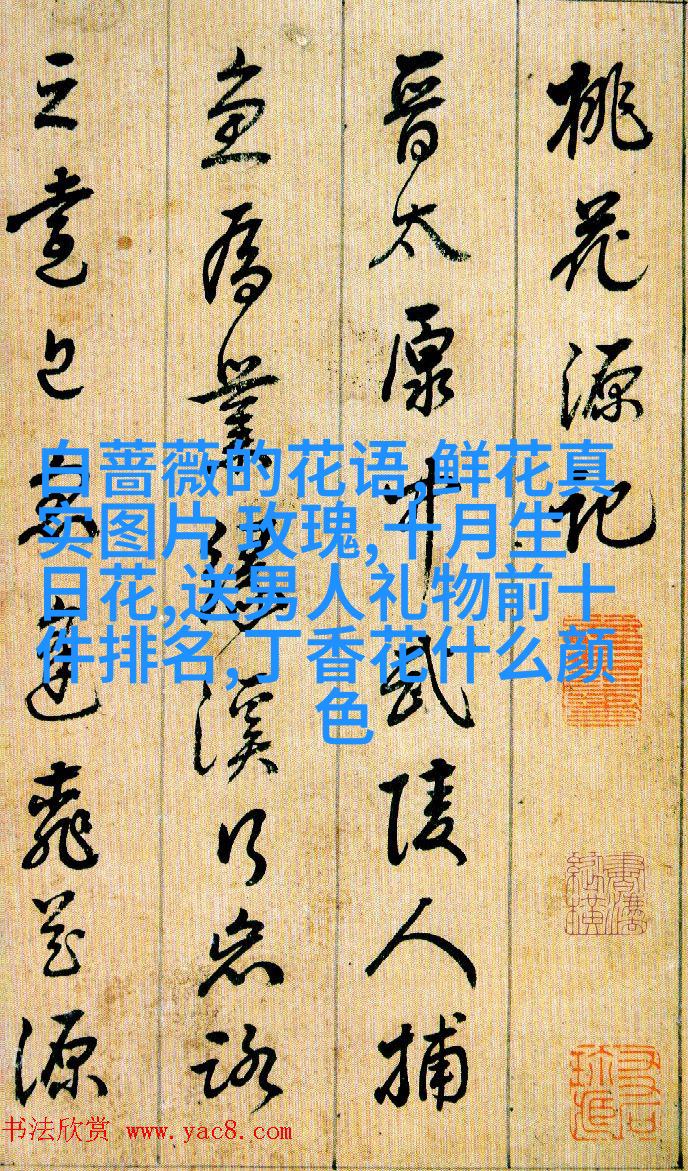 桃花源記
晉太原中武陵人捕
魚為業緣溪行忘路
之源
白蔷薇的花语,鲜花真
实图片,玫瑰,十月生
日花,送男人礼物前十
件排名,丁香花什么颜
色
书法欣赏 www.yac8.com